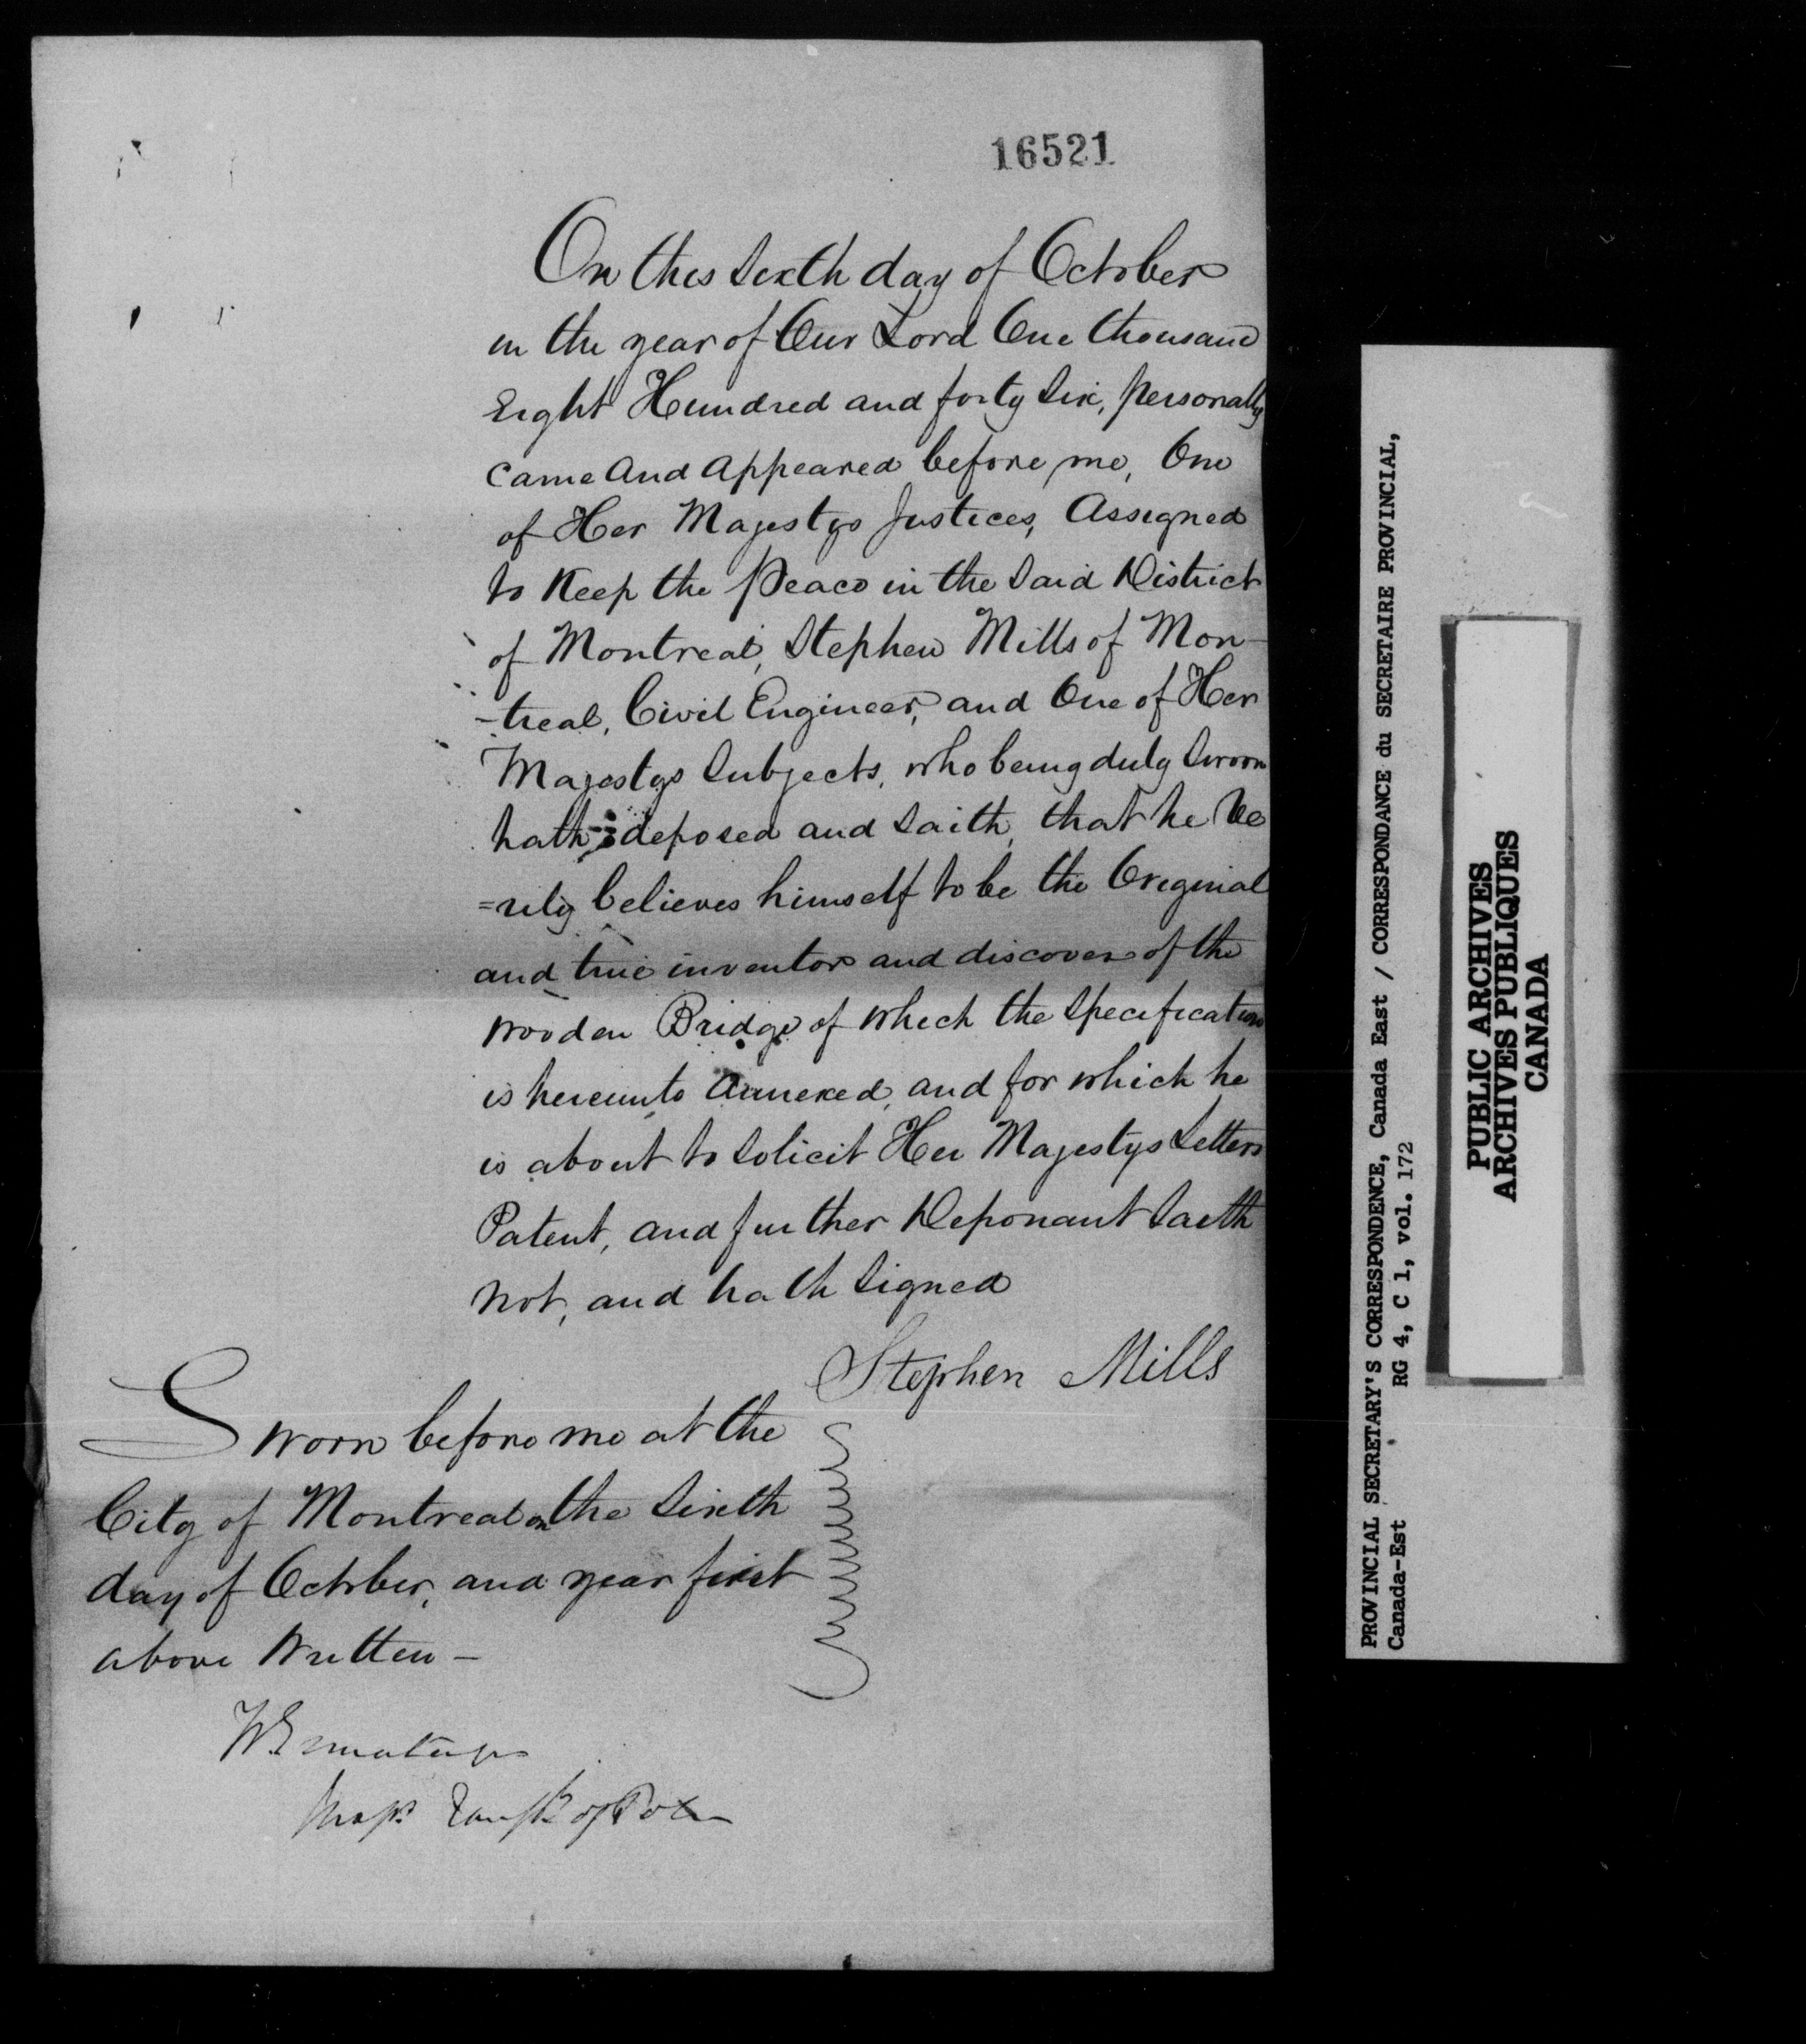 16521
On this Sixth day of October
in the year of Our Lord One thousand
Eight Hundred and forty Six, personally
Came And Appeared before me, One
of Her Majestys Justices, Assigned
to Keep the Peace in the Said District
of Montreal, Stephen Mills of Mon-
-treal, Civil Engineer, and One of Her
Majestys Subjects, who being duly Sworn
hath deposed and Saith, that he Ve
=rily believes himself to be the Original
and true inventor and discover of the
wooden Bridge of which the Specification
is hereunto Annexed, and for which he
is about to Solicit Her Majestys Letters
Patent, and further Deponant Saith
not, and hath Signed
Stephen Mills
Sworn before me at the
City of Montreal on the Sixth
day of October, and year first
above Written -
PROVINCIAL SECRETARY'S CORRESPONDENCE, Canada East / CORRESPONDANCE du SECRETAIRE PROVINCIAL,
Canada-Est RG 4, C 1, vol. 172
PUBLIC ARCHIVES
ARCHIVES PUBLIQUES
CANADA